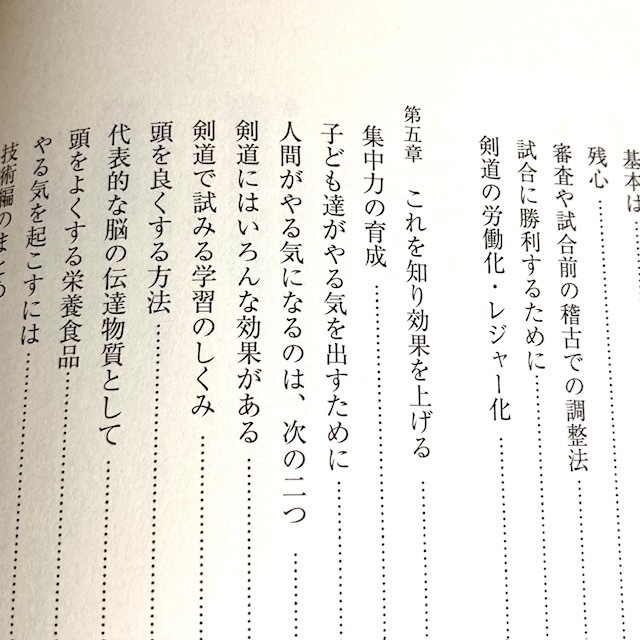 基本は
残心
審査や試合前の稽古での調整法
試合に勝利するために
剣道の労働化・レジャー化
第五章 これを知り効果を上げる
集中力の育成
子ども達がやる気を出すために
人間がやる気になるのは、次の二つ
剣道にはいろんな効果がある
剣道で試みる学習のしくみ
頭を良くする方法
代表的な脳の伝達物質として
頭をよくする栄養食品
やる気を起こすには
技術編のまとめ